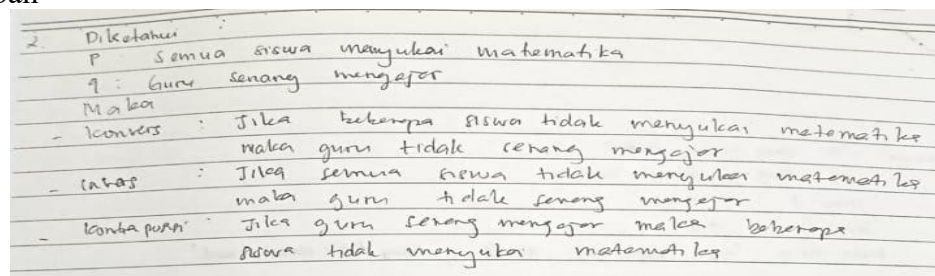 2. Diketahui :
P Semua siswa menyukai matematika
q : Guru senang mengajar
Maka
- Konvers : Jika beberapa siswa tidak menyukai matematika
maka guru tidak senang mengajar
- Invers : Jika semua siswa tidak menyukai matematika
maka guru tidak senang mengajar
- Kontraposisi : Jika guru senang mengajar maka beberapa
siswa tidak menyukai matematika